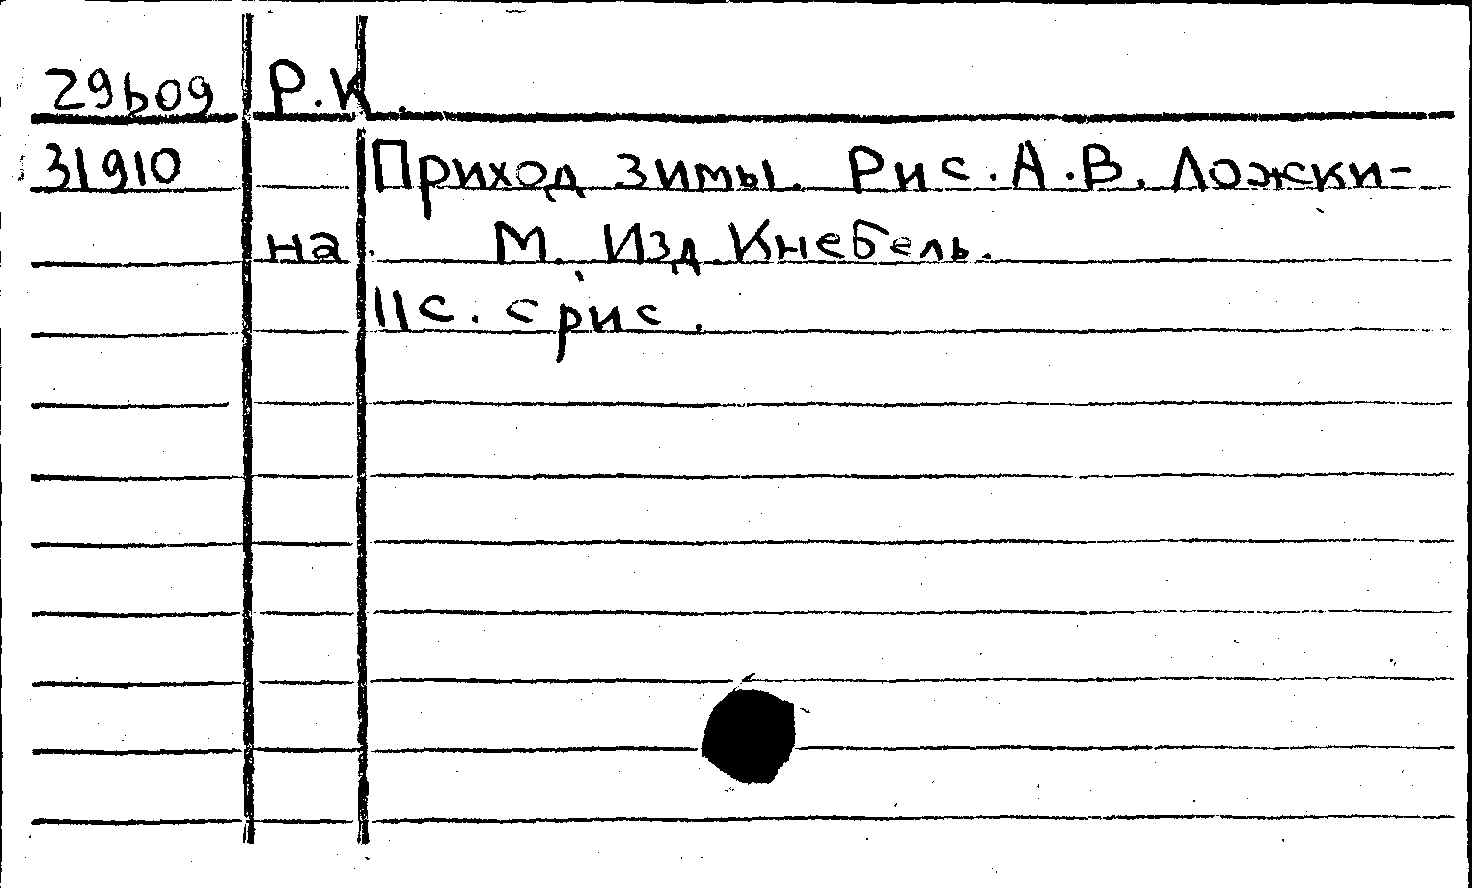 29609 Р.К.
31910 Приход зимы. Рис. А.В. Ложки-
на. М. Изд. Кнебель.
11с. с рис.